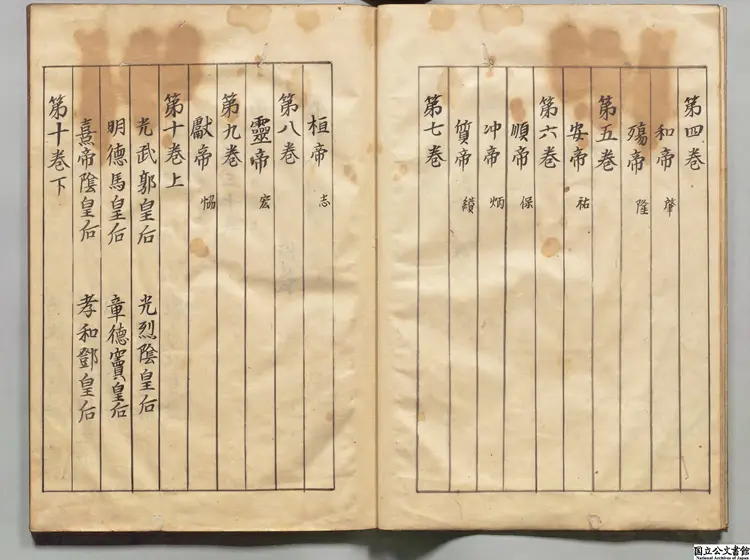 第四卷
和帝 肇
殤帝 隆
第五卷
安帝 祜
第六卷
順帝 保
冲帝 炳
質帝 纉
第七卷
桓帝 志
第八卷
靈帝 宏
第九卷
獻帝 恊
第十卷上
光武郭皇后 光烈陰皇后
明德馬皇后 章德竇皇后
熹帝陰皇后 孝和鄧皇后
第十卷下
国立公文書館
National Archives of Japan